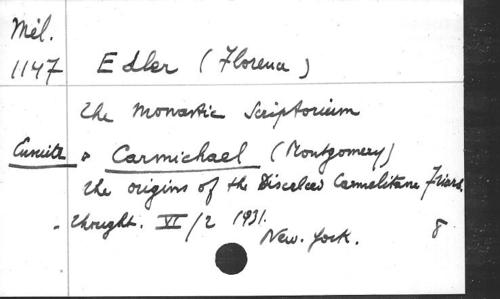 Mél.
1147 Edler (Florence)
the Monastic Scriptorium
Ensuite Carmichael (Montgomery)
the origins of the Discalced Carmelitane Friars
- thought. VI/2 1931.
New-York. 8